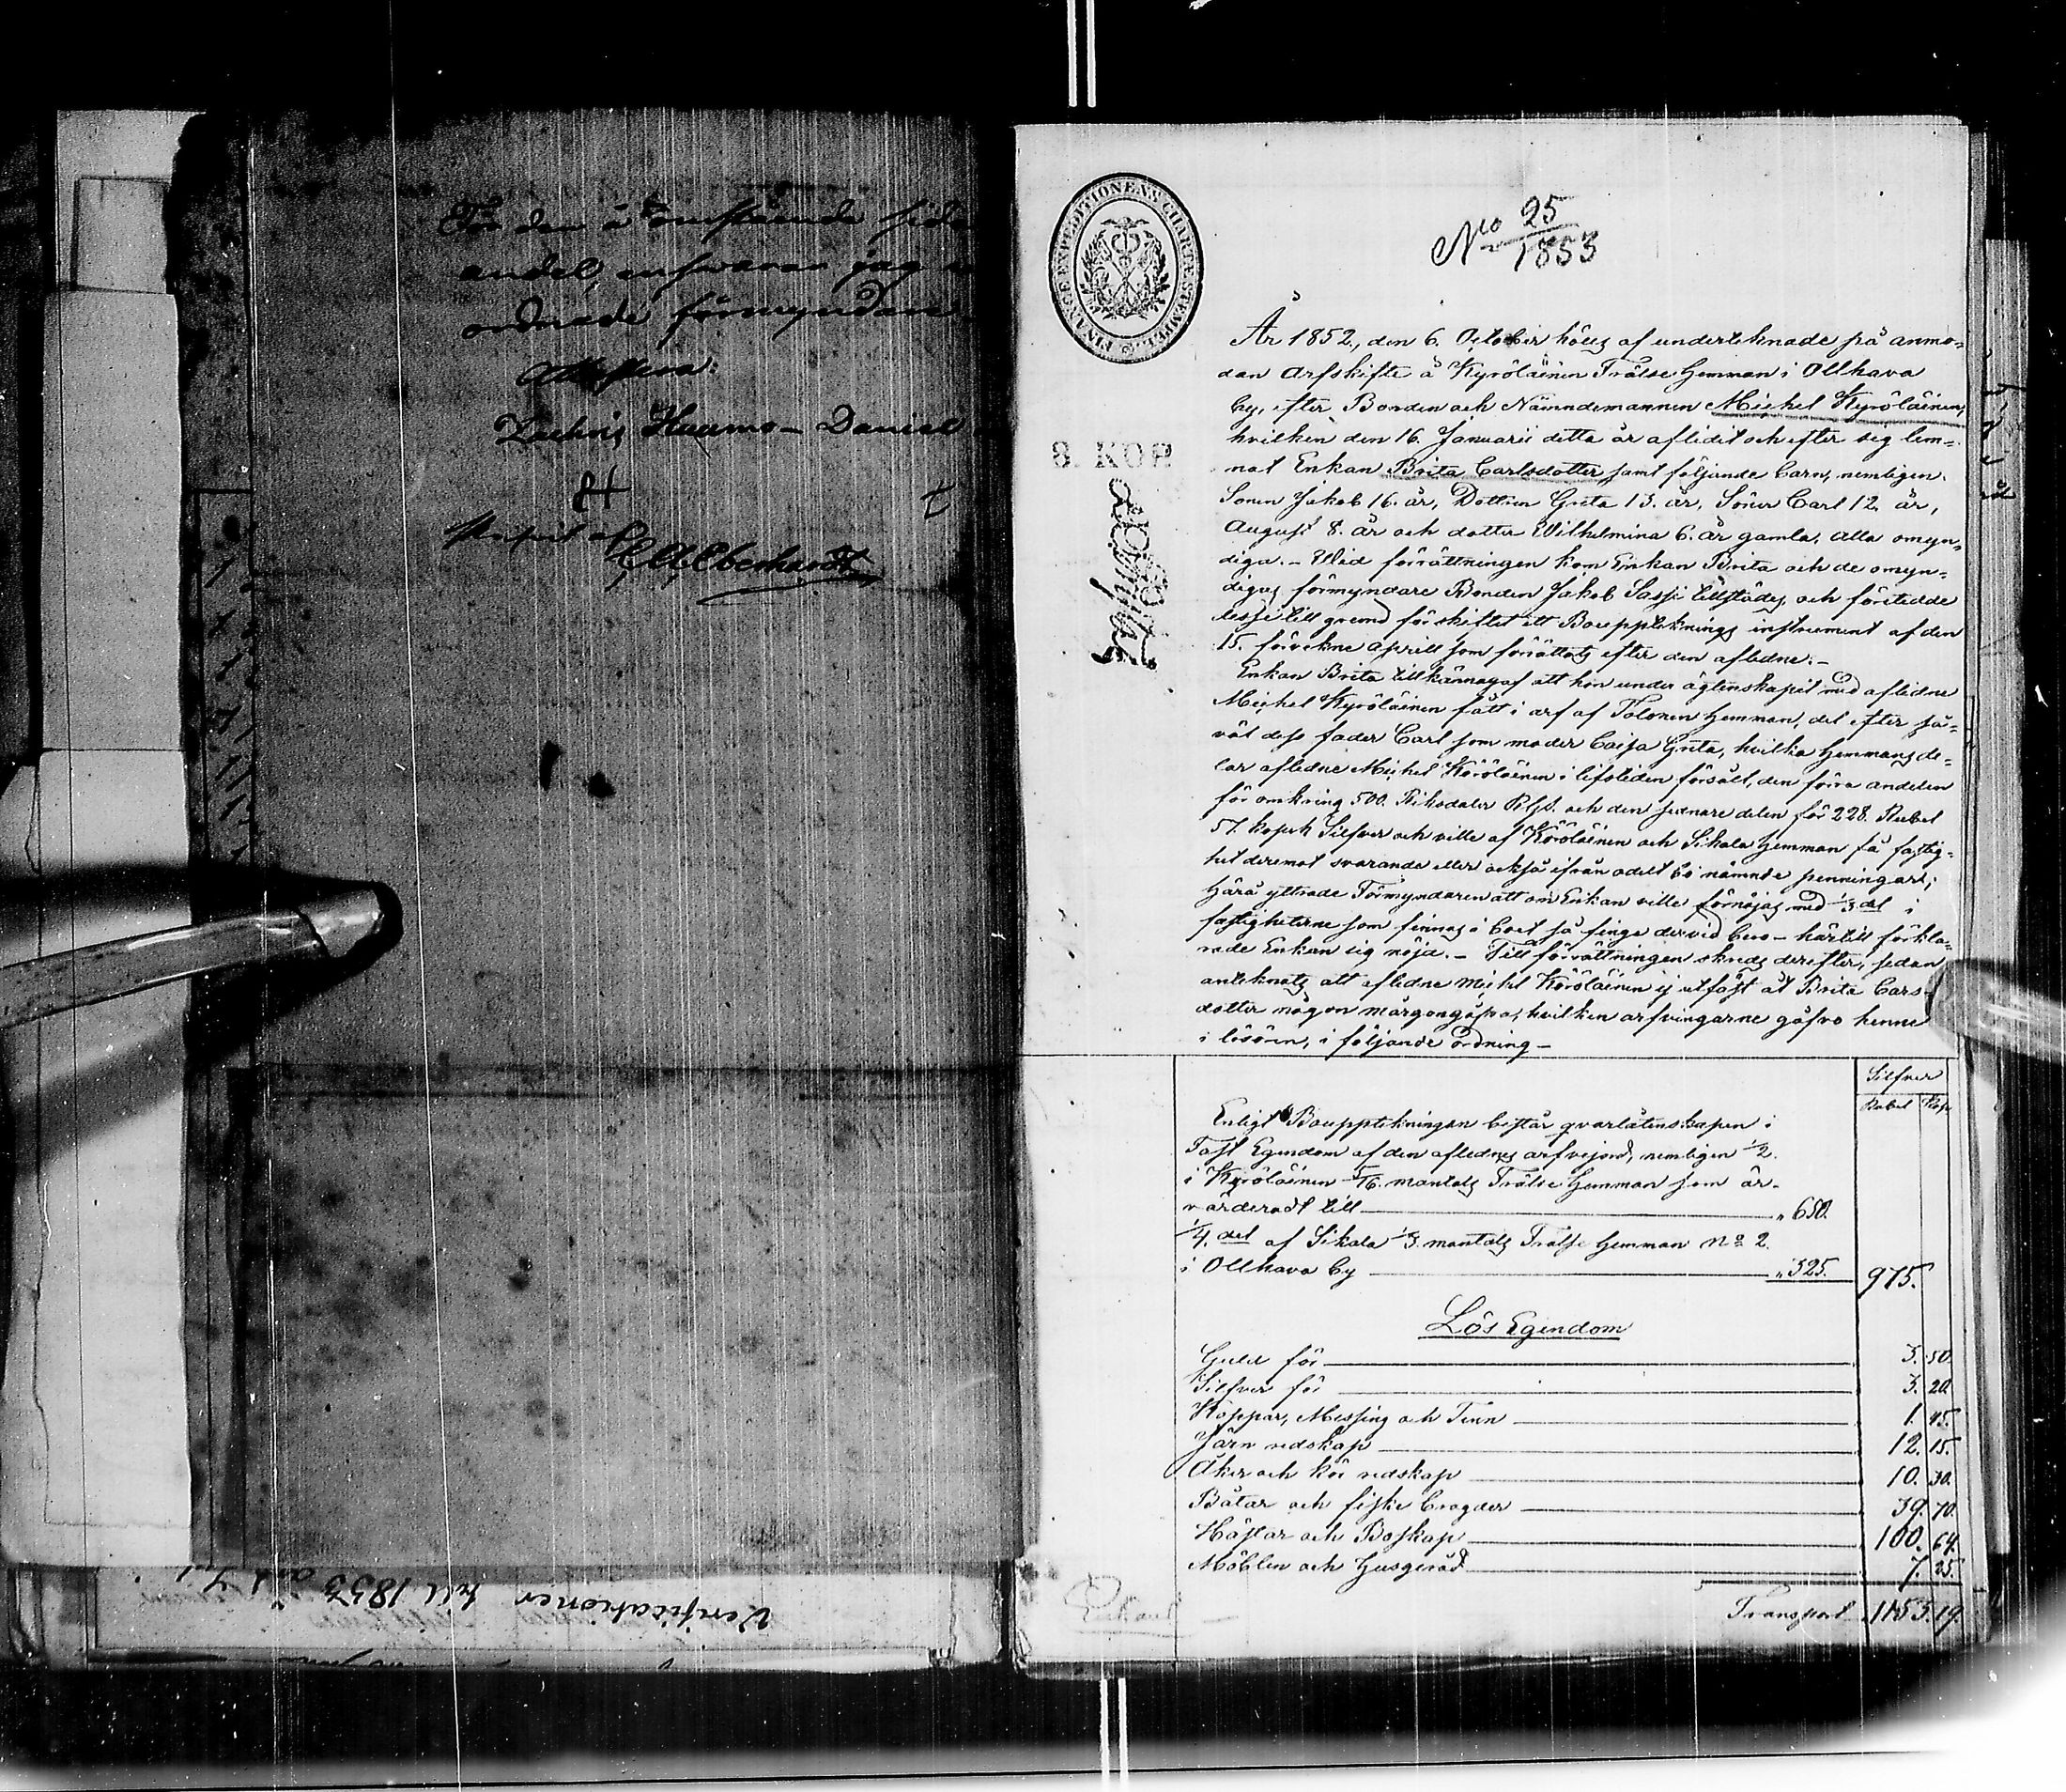 För den å omstående sida
andel, ansvarar jag
ordnade förmyndare
Zachris Haamo - Daniel
C A Eberhardt
Verificationer till 1853
FINANCE EXPEDITIONENS CHARTÆ STEMPEL
8. KOP
No 25/1853
År 1852, den 6. October hölls af undertecknade på anmo-
dan Arfskifte å Kyröläinen Frälse Hemman i Ollhava
by, efter Bonden och Nämndemannen Michel Kyröläinen,
hvilken den 16. Januarii detta år aflidit och efter sig lem-
nat Enkan Brita Carlsdotter samt följande barn, nemligen.
Sonen Jakob 16. år, Dottren Greta 13. år, Söner Carl 12 år,
August 8. år och dotter Wilhelmina 6. år gamla, alla omyn-
diga. - Wid förrättningen kom Enkan Brita och de omyn-
digas förmyndare Bonden Jakob Sassi tillstädes och företedde
desse till grund för skiftet ett Bouppteknings instrument af den
15. förvekne Aprill som förrättats efter den aflidne. -
Enkan Brita tillkännagaf att hon under ägtenskapet med aflidne
Michel Kyröläinen fått i arf af Tolonen Hemman, del efter så-
väl dess fader Carl som moder Caisa Greta, hvilka Hemmans de-
lar aflidne Michel Köröläinen i lifstiden försålt, den förra andelen
för omkring 500. Riksdaler Rgs. och den sednare delen för 228. Rubel
57. kopek Silfver och ville af Köröläinen och Sikala Hemman få fastig-
het deremot svarande eller också ifrån odelt bo nämnde penningar;
Härå yttrade Förmyndaren att om Enkan ville förnöjas med 1/3 del i
fastigheterne som finnas i boet så finge dervid bero - härtill förkla-
rade Enkan sig nöjd. - Till förrättningen skreds derefter, sedan
anteknats att aflidne Michel Köröläinen ej utfäst åt Brita Cars-
dotter någon morgongåfva, hvilken arfvingarne gåfvo henne
i lösören, i följande ordning -
Silfver
Rubel Kop
Enligt Bouppteckningen består qvarlåtenskapen i
Fast Egendom af den aflednes arfvejord, nemligen 1/2.
i Kyröläinen 5/16. mantals Frälse Hemman som är.
värderadt till " 650.
1/4. del af Sikala 1/3 mantals Frälse Hemman No 2.
i Ollhava by " 325. 975.
Lös Egendom
Guld för 3. 50.
Silfver för 3. 20.
Koppar, Messing och Tenn 1. 45.
Järn redskap 12. 15.
Åker och kör redskap 10. 30.
Båtar och fiske bragder 39. 70.
Hästar och Boskap 100. 64.
Möblen och Husgeråd 7. 25.
Transport 1153. 19.